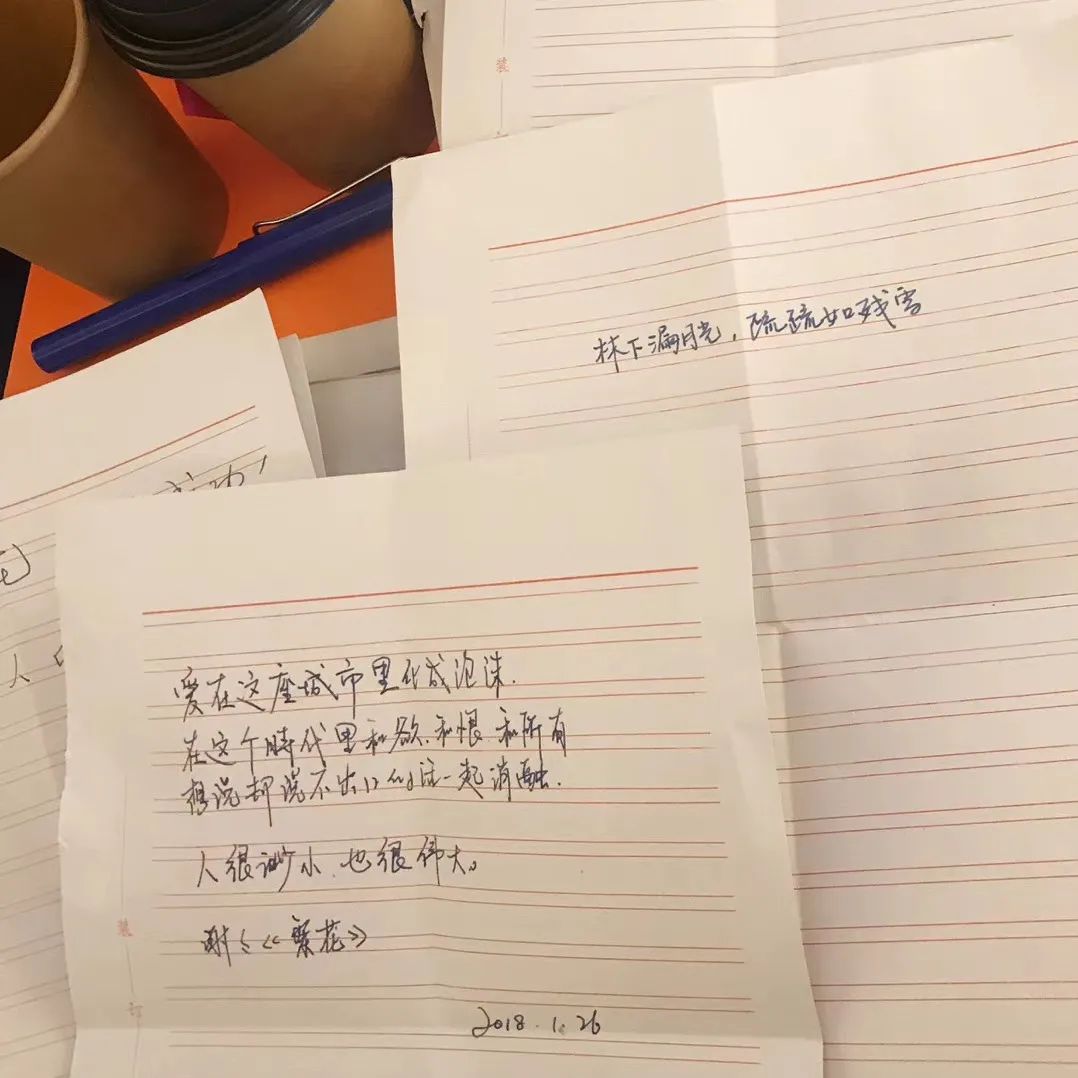 装
林下漏月光，疏疏如残雪
爱在这座城市里化成泡沫.
在这个時代里和欲、和恨、和所有
想说却说不出口的话一起消融.
人很渺小、也很伟大。
谢谢《繁花》
2018.1.26
装
订
人